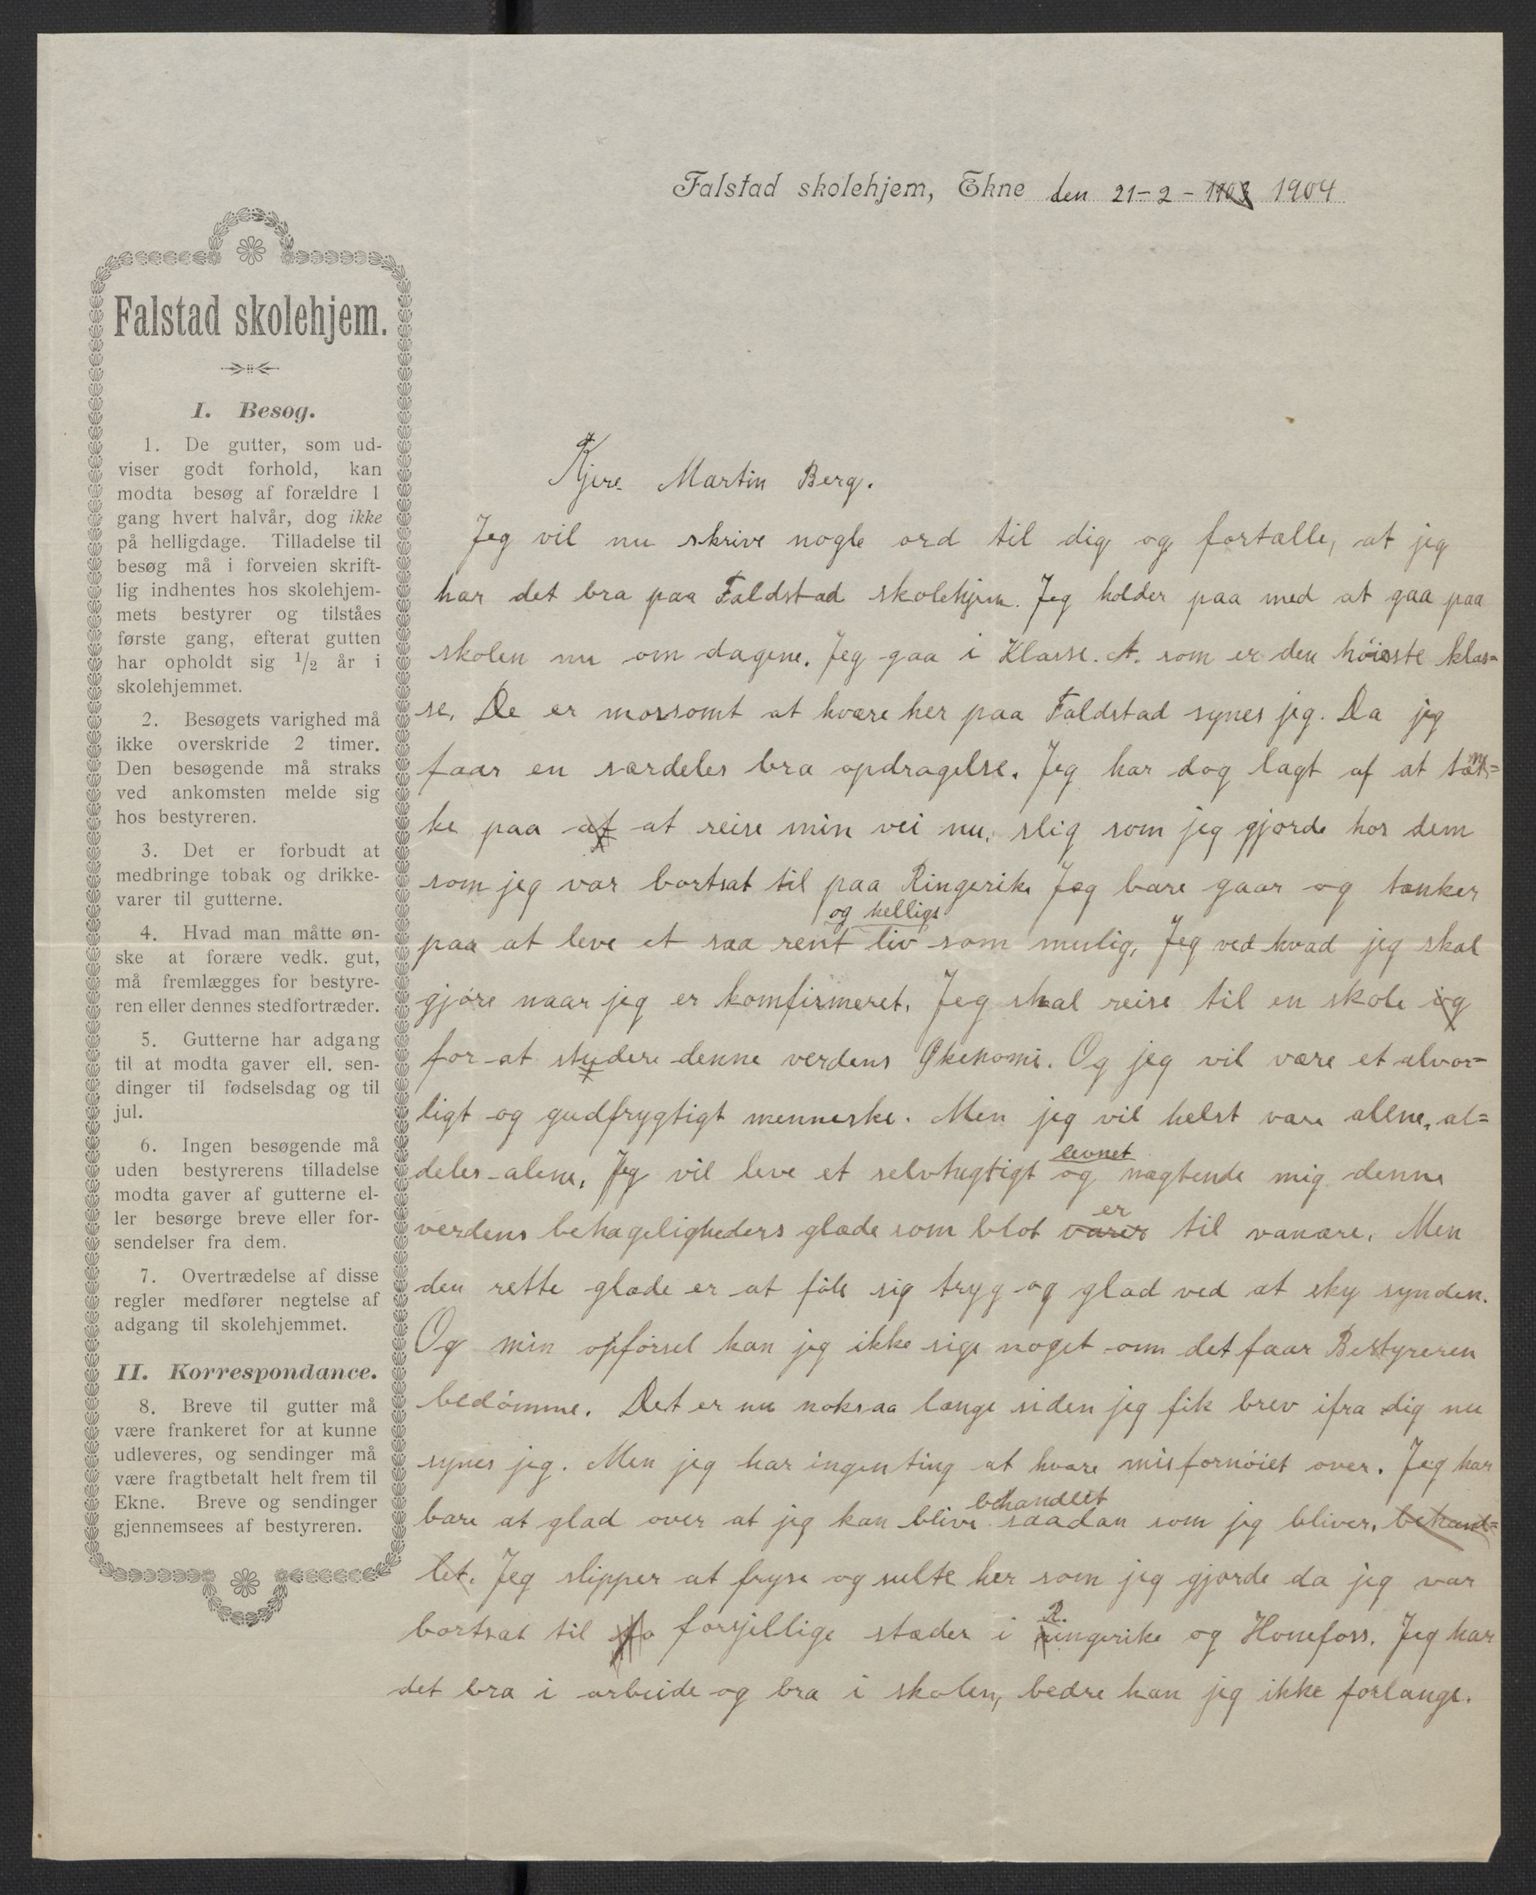 Falstad skolehjem, Ekne den 21-2-1903 1904
Falstad skolehjem.
I. Besøg.
1. De gutter, som ud-
viser godt forhold, kan
modta besøg af forældre 1
gang hvert halvår, dog ikke
på helligdage. Tilladelse til
besøg må i forveien skrift-
lig indhentes hos skolehjem-
mets bestyrer og tilståes
første gang, efterat gutten
har opholdt sig 1/2 år i
skolehjemmet.
2. Besøgets varighed må
ikke overskride 2 timer.
Den besøgende må straks
ved ankomsten melde sig
hos bestyreren.
3. Det er forbudt at
medbringe tobak og drikke-
varer til gutterne.
4. Hvad man måtte øn-
ske at forære vedk. gut,
må fremlægges for bestyre-
ren eller dennes stedfortræder.
5. Gutterne har adgang
til at modta gaver ell. sen-
dinger til fødselsdag og til
jul.
6. Ingen besøgende må
uden bestyrerens tilladelse
modta gaver af gutterne el-
ler besørge breve eller for-
sendelser fra dem.
7. Overtrædelse af disse
regler medfører negtelse af
adgang til skolehjemmet.
II. Korrespondance.
8. Breve til gutter må
være frankeret for at kunne
udleveres, og sendinger må
være fragtbetalt helt frem til
Ekne. Breve og sendinger
gjennemsees af bestyreren.
Kjere Martin Berg.
Jeg vil nu skrive nogle ord til dig og fortælle, at jeg
har det bra paa Faldstad skolehjem. Jeg holder paa med at gaa paa
skolen nu om dagene. Jeg gaa i Klasse. A. som er den høieste klas=
se. De er morsomt at hvære her paa Faldstad synes jeg. Da jeg
faar en særdeles bra opdragelse. Jeg har dog lagt af at tæn=
ke paa af at reise min vei nu, slig som jeg gjorde hos dem
som jeg var bortsat til paa Ringerike Jeg bare gaar og tænker
og helligt
paa at leve et saa rent liv som mulig, Jeg ved hvad jeg skal
gjøre naar jeg er komfirmeret. Jeg skal reise til en skole og
for at studere denne verdens Økenomi. Og jeg vil være et alvor=
ligt og gudfrygtigt menneske. Men jeg vil helst være alene, al=
levnet
deles alene, Jeg vil leve et selvtugtigt og nægtende mig denne
er
verdens behageligheders glæde som blot varer til vanære. Men
den rette glæde er at føle sig tryg og glad ved at sky synden.
Og min opførsel kan jeg ikke sige noget om det faar Bestyreren
bedømme. Det er nu noksaa længe siden jeg fik brev ifra dig nu
synes jeg. Men jeg har ingenting at hvære misfornøiet over. Jeg har
behandlet
bare at glad over at jeg kan blive saadan som jeg bliver. behand=
let. Jeg slipper at fryse og sulte her som jeg gjorde da jeg var
R.
bortsat til forsjellige stæder i ringerike og Honefoss. Jeg har
det bra i arbeide og bra i skolen, bedre kan jeg ikke forlange.